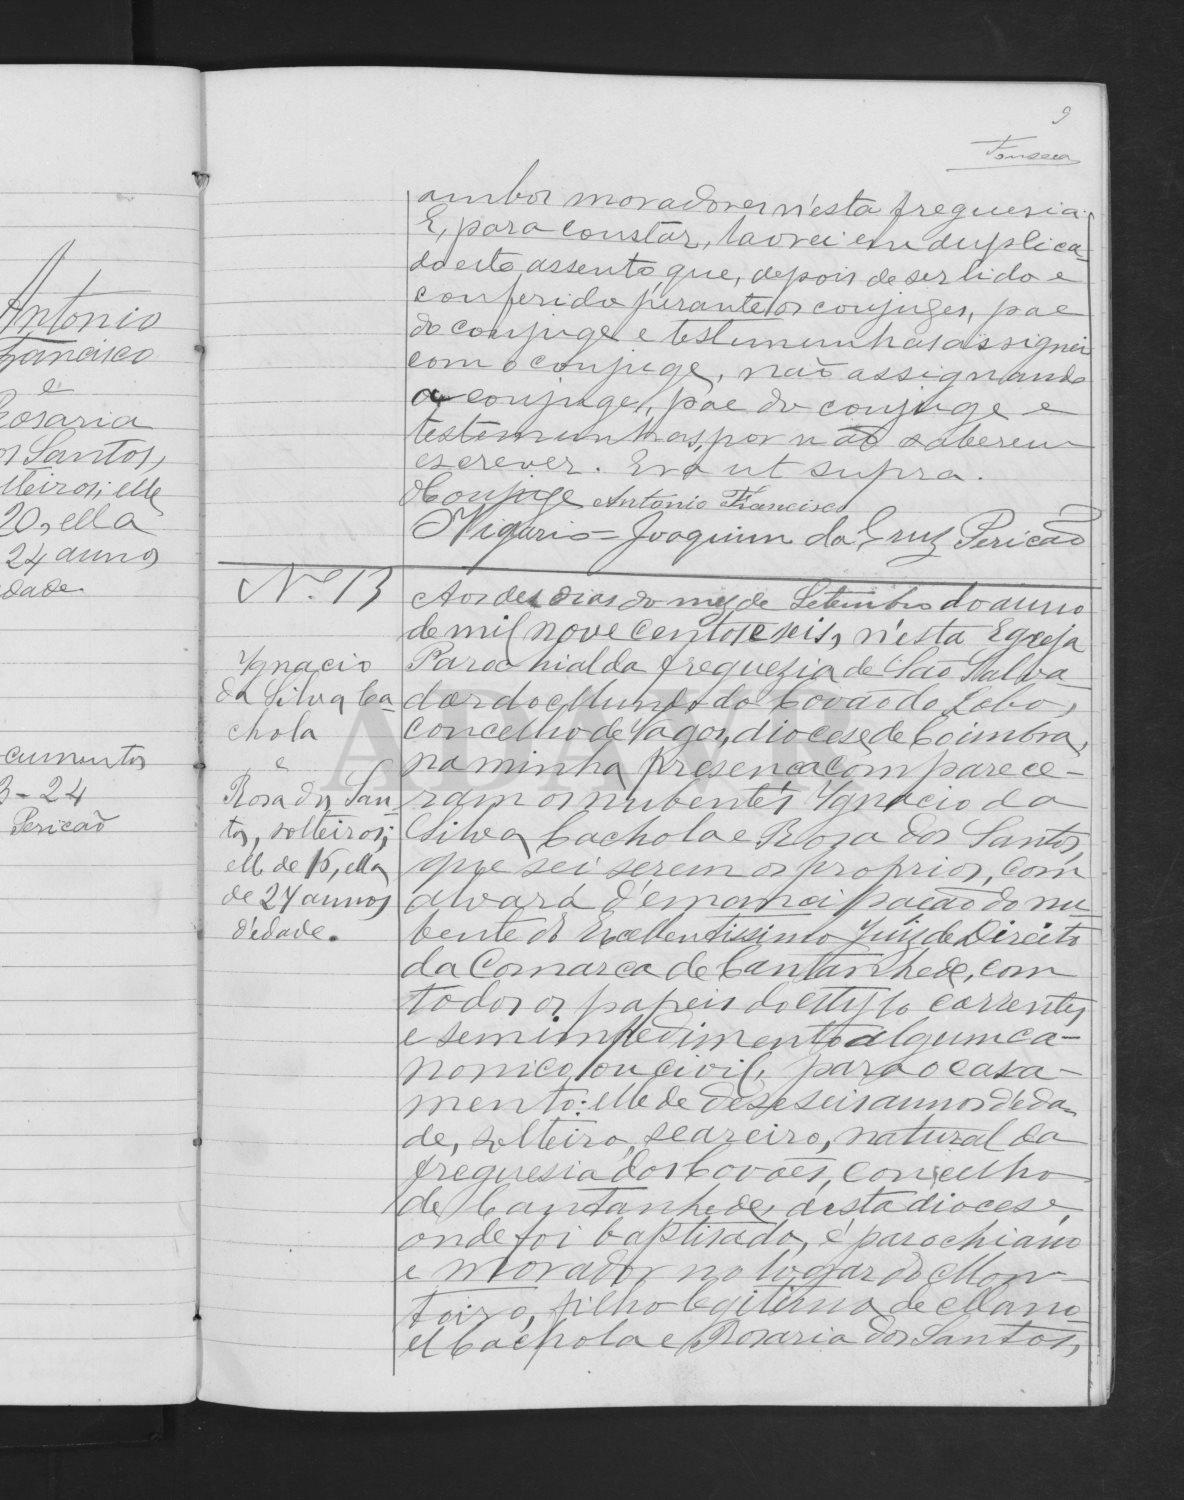 9
Fonseca
Antonio
Francisco
e
Rosaria
os Santos,
lteiros; elle
20, ella
24 annos
dade.
cumentos
3-24
Pericão
ambos moradores n'esta freguesia.
E, para constar, lavrei em duplica-
do este assento, que, depois de ser lido e
conferido perante os conjuges, pae
do conjuge e testemunhas assignei
com o conjuge, não assignando
a conjuge, pae do conjuge e
testemunhas, por não saberem
escrever. Era ut supra.
O Conjuge Antonio Francisco
O Vigario = Joaquim da Cruz Pericão
N.º 13
Ygnacio
da Silva Ca
chola
e
Rosa dos San
tos, solteiros;
elle de 16, ella
de 24 annos
d'edade.
Aos dez dias do mez de Setembro do anno
de mil nove centos e seis, n'esta Egreja
Parochial da freguezia de São Salva-
dor do Mundo do Covão do Lobo,
concelho de Vagos, diocese de Coimbra,
na minha presença compare ce-
ram os nubentes Ygnacio da
Silva Cachola e Rosa dos Santos,
que sei serem os proprios, com
alvará d'emancipação do nu-
bente do Excellentissimo Juiz de Direito
da Comarca de Cantanhede, com
todos os papeis do estylo correntes
e sem impedimento algum ca-
nonico ou civil, para o casa-
mento: elle de deseseis annos d'eda-
de, solteiro, seareiro, natural da
freguesia dos Covões, concelho
de Cantanhede, desta diocese,
onde foi baptisado, é parochiano
e morador no lugar do Mon-
toiro, filho legitimo de Mano-
el Cachola e Rosaria dos Santos,
ADAVR